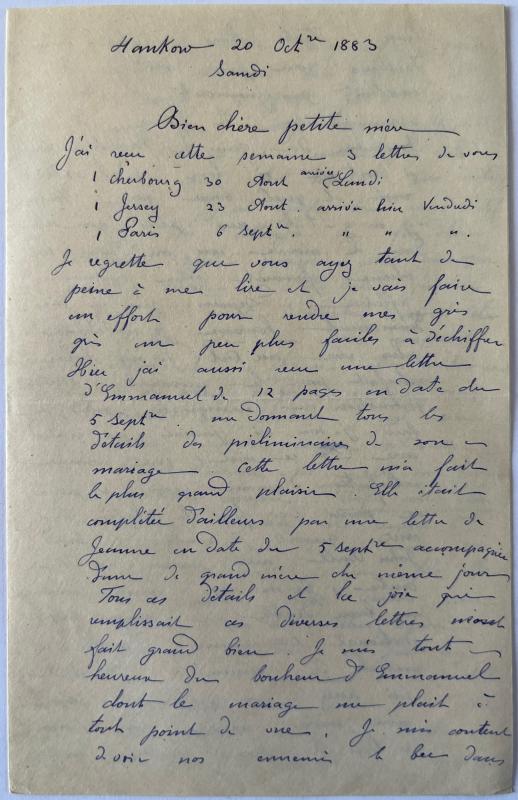 Hankow 20 Oct^re 1883
Samdi
Bien chère petite mère
J'ai reçu cette semaine 3 lettres de vous
1 Cherbourg 30 Aout arrivée Lundi
1 Jersey 23 Aout. arrivée hier Vendredi
1 Paris 6 Sept^re. " " ".
Je regrette que vous ayez tant de
peine à me lire et je vais faire
un effort pour rendre mes gris
gris un peu plus faciles à déchiffrer
Hier j'ai aussi reçu une lettre
d'Emmanuel de 12 pages en date du
5 Sept^re. me donnant tous les
détails des préliminaires de son
mariage. Cette lettre m'a fait
le plus grand plaisir. Elle était
complétée d'ailleurs par une lettre de
Jeanne en date du 5 Sept^re accompagnée
d'une de grand'mère du même jour
Tous ces détails et la joie qui
remplissait ces diverses lettres m'ont
fait grand bien. Je suis tout
heureux du bonheur d'Emmanuel
dont le mariage me plait à
tout point de vue. Je suis content
de voir nos ennemis le bec dans